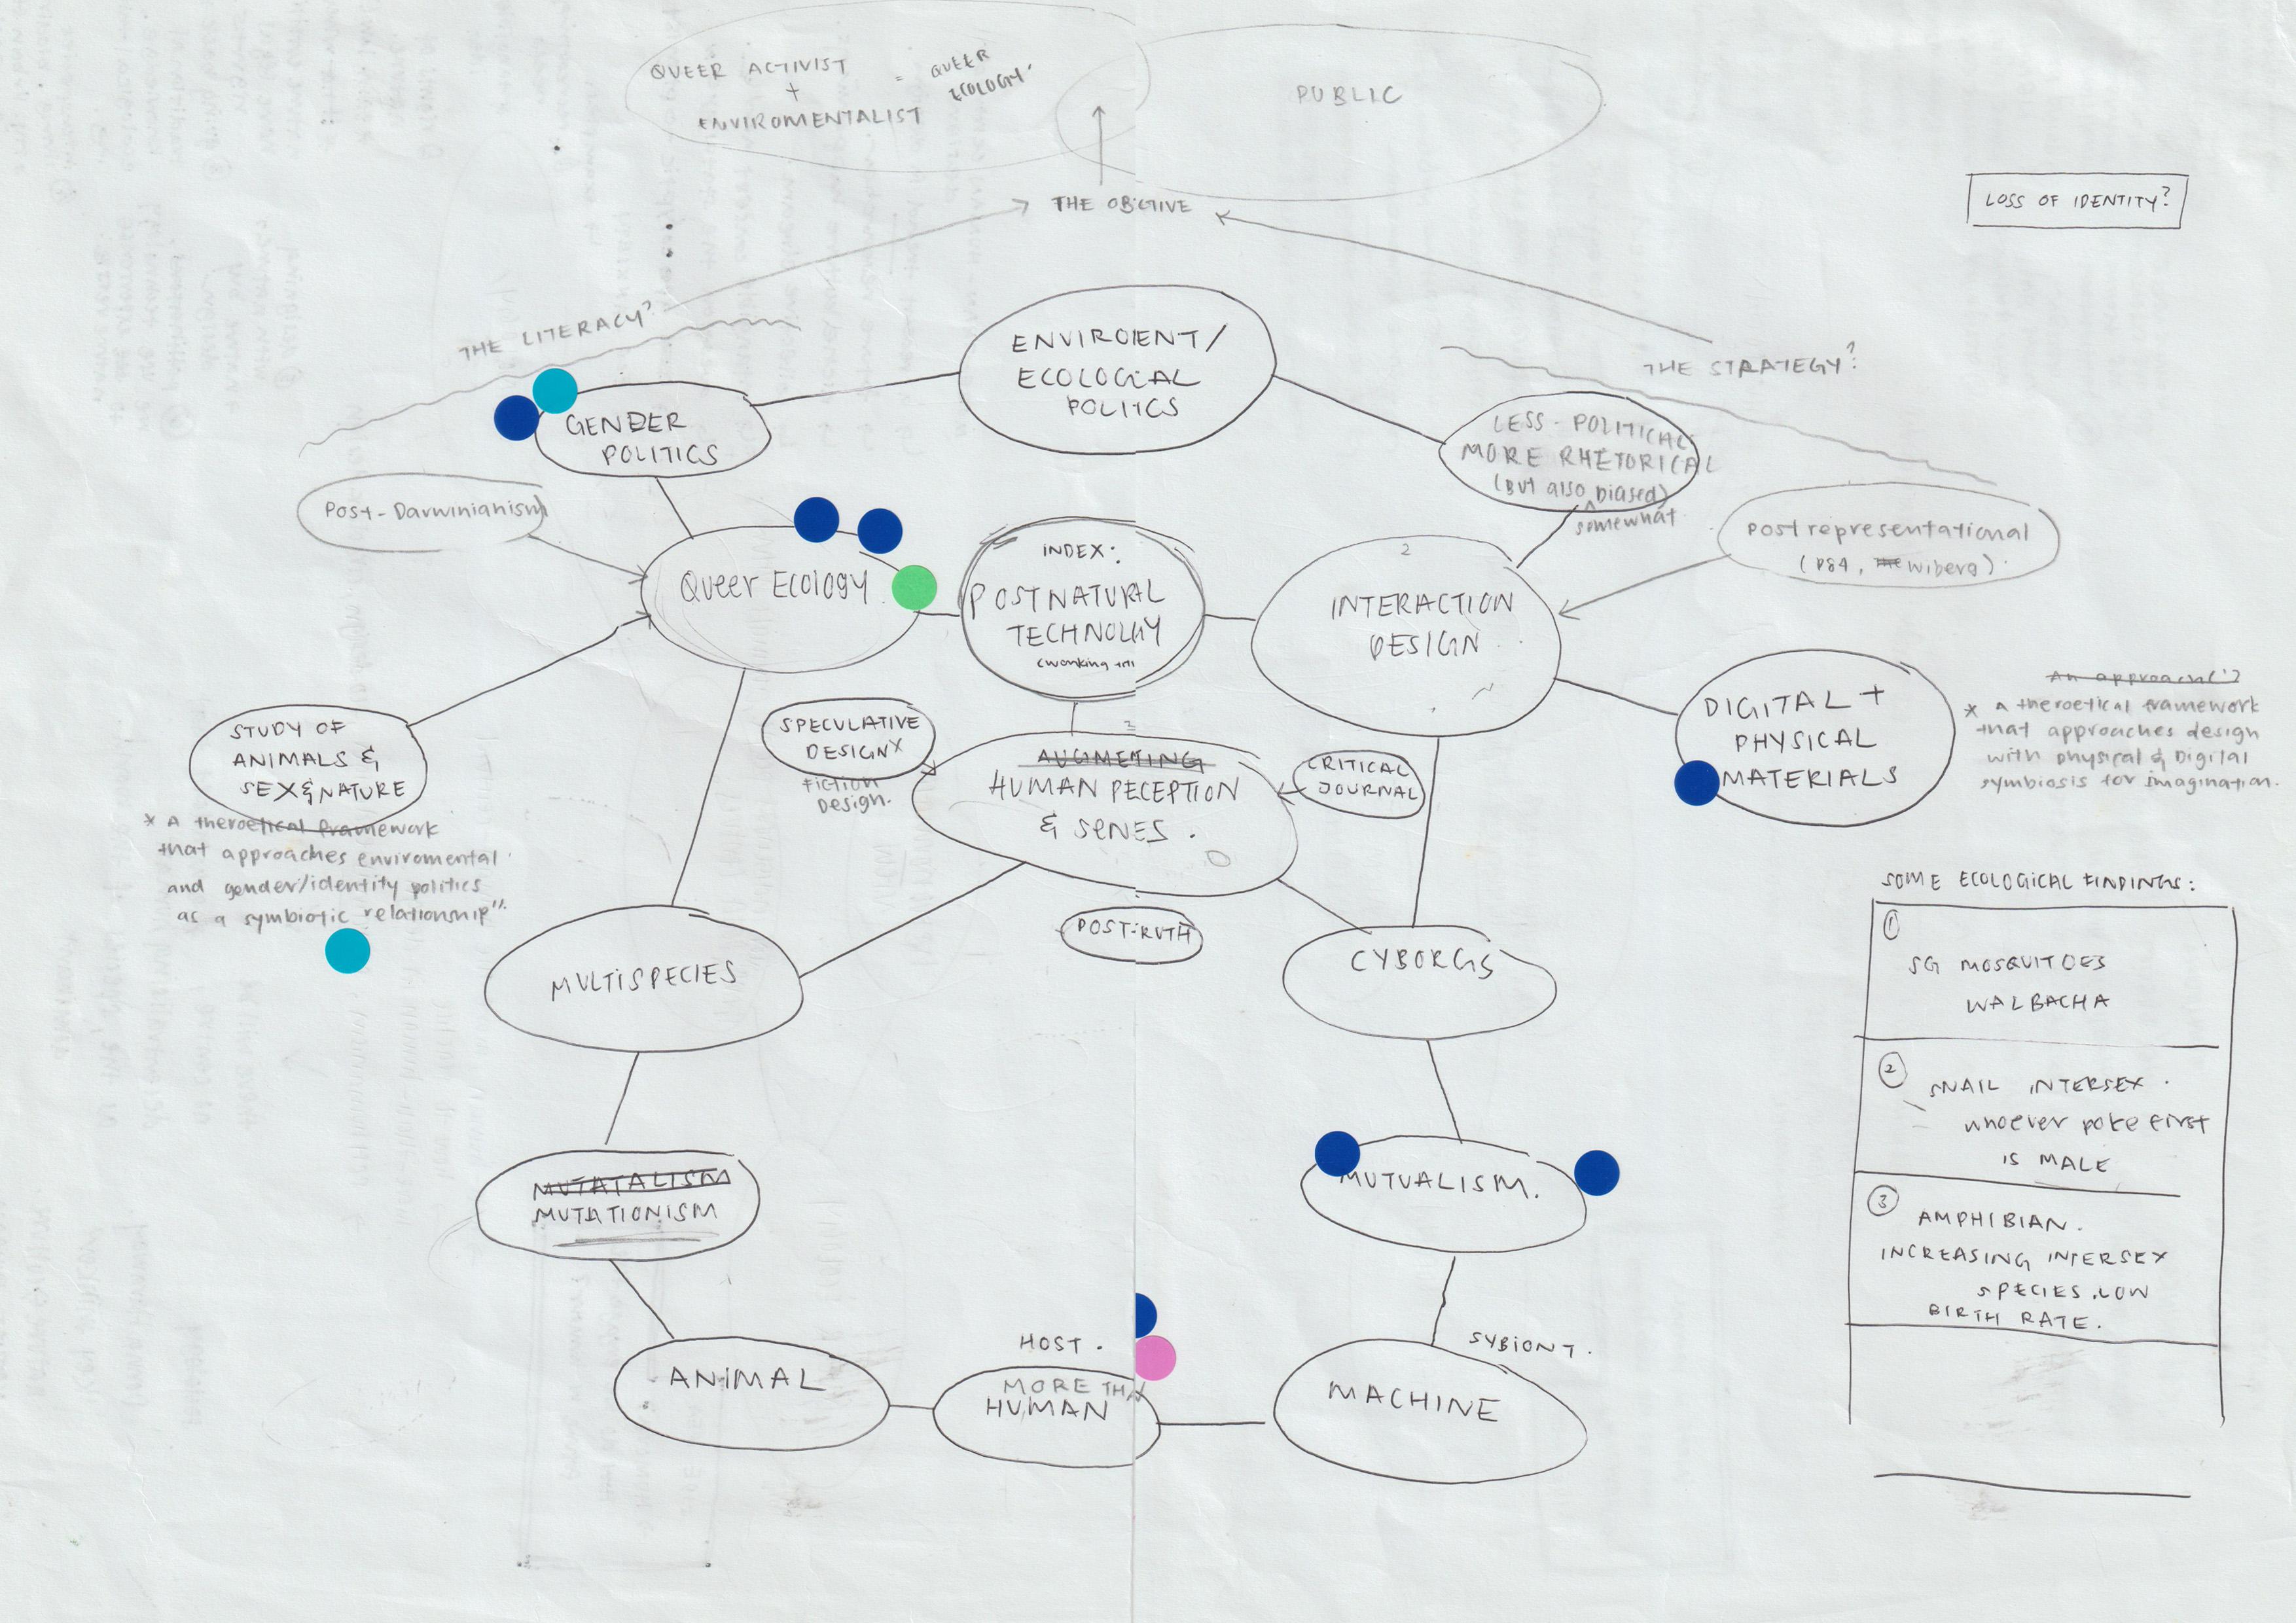 QUEER ACTIVIST
+
ENVIROMENTALIST
= QUEER
ECOLOGY.
PUBLIC
THE OBCTIVE
LOSS OF IDENTITY?
THE LITERACY?
ENVIROENT/
ECOLOGIAL
POLITCS
THE STRATEGY?
GENDER
POLITICS
LESS - POLITICAL
MORE RHETORICAL
(BUT also biased)
^
somewhat
Post-Darwinianism
Postrepresentational
(DS4, Wiberg).
Queer Ecology
INDEX:
POSTNATURAL
TECHNOLGY
2
INTERACTION
DESIGN
STUDY OF
ANIMALS &
SEX&NATURE
* A theroetical framework
that approaches enviromental
and gender/identity politics
as a symbiotic relationship".
SPECULATIVE
DESIGN
FICTION
Design.
2
AUGMETING
HUMAN PECEPTION
& SENES.
CRITICAL
JOURNAL
DIGITAL +
PHYSICAL
MATERIALS
An approach(')
* A theroetical framework
that approaches design
with physical & Digilal
symbiosis for imagination.
POST-RUTH
MULTISPECIES
CYBORGS
SOME ECOLOGICAL FINDINGS:
1
SG MOSQUITOES
WALBACHA
2
SNAIL INTERSEX.
whoever poke first
IS MALE
3
AMPHIBIAN.
INCREASING INTERSEX
SPECIES. LOW
BIRTH RATE.
MUTATALISM
MUTATIONISM
MUTUALISM.
ANIMAL
HOST.
MORE THA
HUMAN
SYBIONT.
MACHINE